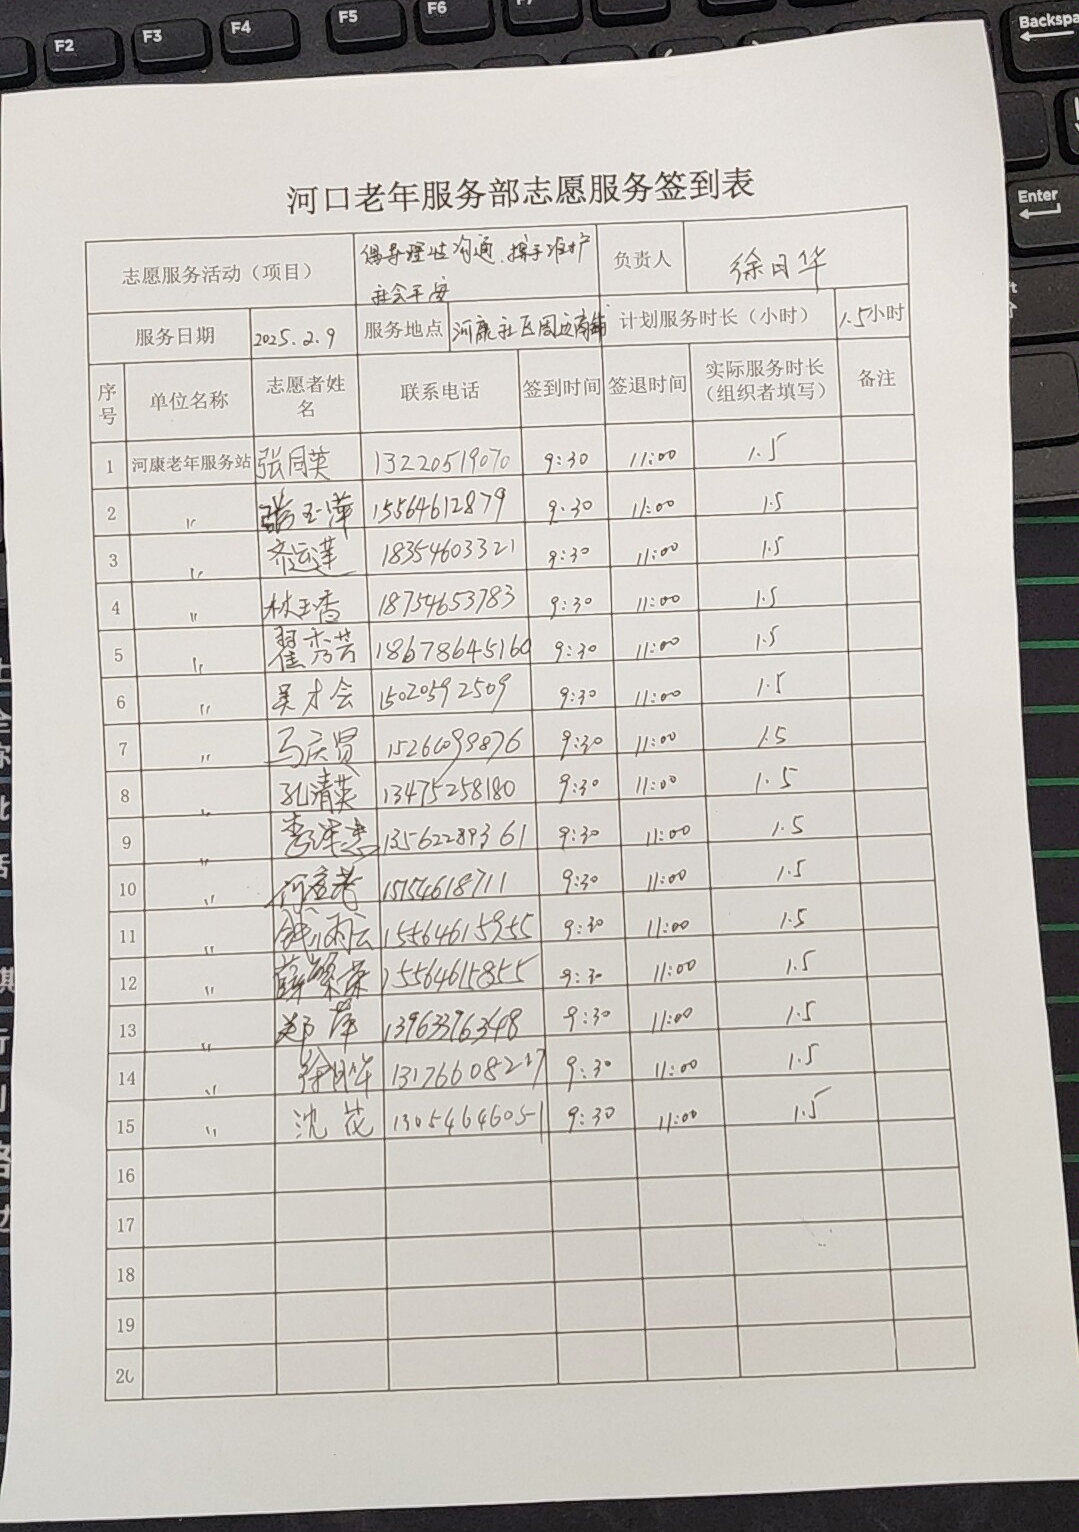 F2 F3 F4 F5 F6 F7 Backspa
Enter
河口老年服务部志愿服务签到表
志愿服务活动（项目） 倡导理性沟通、携手维护 负责人 徐日华
社会平安
服务日期 2025.2.9 服务地点 河康社区周边商铺 计划服务时长（小时） 1.5小时
序号 单位名称 志愿者姓名 联系电话 签到时间 签退时间 实际服务时长（组织者填写） 备注
1 河康老年服务站 张同英 13220519070 9:30 11:00 1.5
2 〃 张玉萍 15564612879 9:30 11:00 1.5
3 〃 齐运莲 18354603321 9:30 11:00 1.5
4 〃 林玉香 18754653783 9:30 11:00 1.5
5 〃 翟秀芳 18678645160 9:30 11:00 1.5
6 〃 吴才会 15020592509 9:30 11:00 1.5
7 〃 马庆贤 15266099876 9:30 11:00 1.5
8 〃 孔清英 13475258180 9:30 11:00 1.5
9 〃 13562289361 9:30 11:00 1.5
10 〃 15154618711 9:30 11:00 1.5
11 〃 15564615955 9:30 11:00 1.5
12 〃 薛荣 15564615855 9:30 11:00 1.5
13 〃 郑萍 13963376348 9:30 11:00 1.5
14 〃 徐日华 13176608217 9:30 11:00 1.5
15 〃 沈花 13054646051 9:30 11:00 1.5
16
17
18
19
20